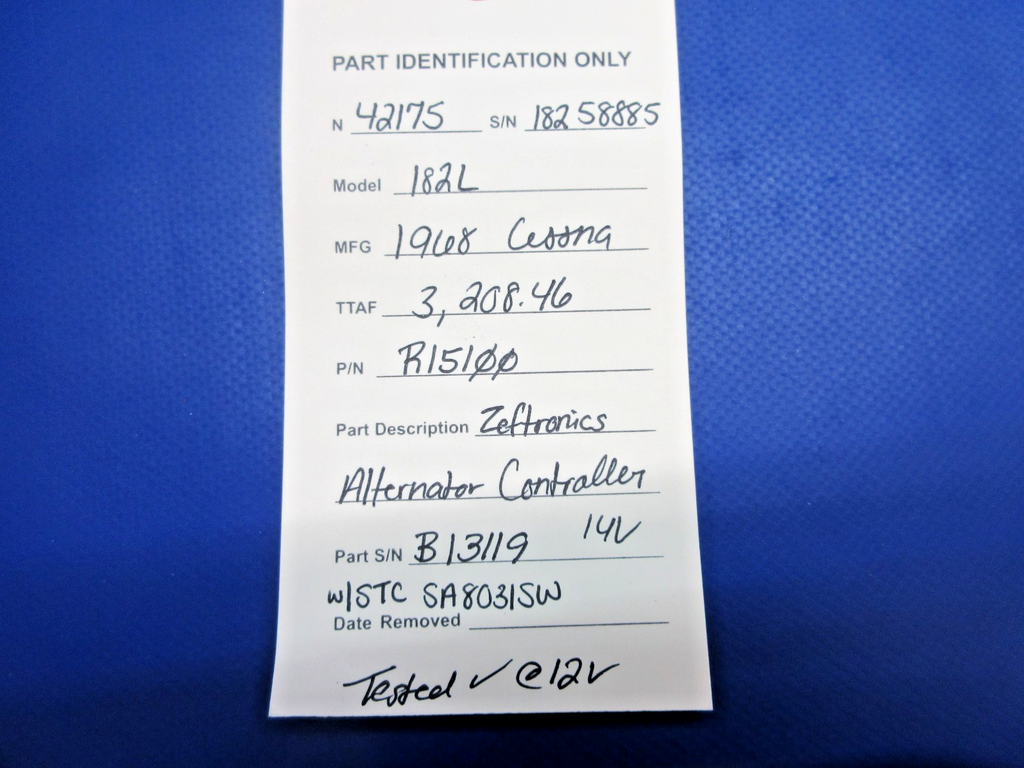 PART IDENTIFICATION ONLY
N 42175 S/N 18258885
Model 182L
MFG 1968 Cessna
TTAF 3,208.46
P/N R15100
Part Description Zeftronics
Alternator Controller
Part S/N B13119 14V
w/STC SA8031SW
Date Removed
Tested ✓ @12V